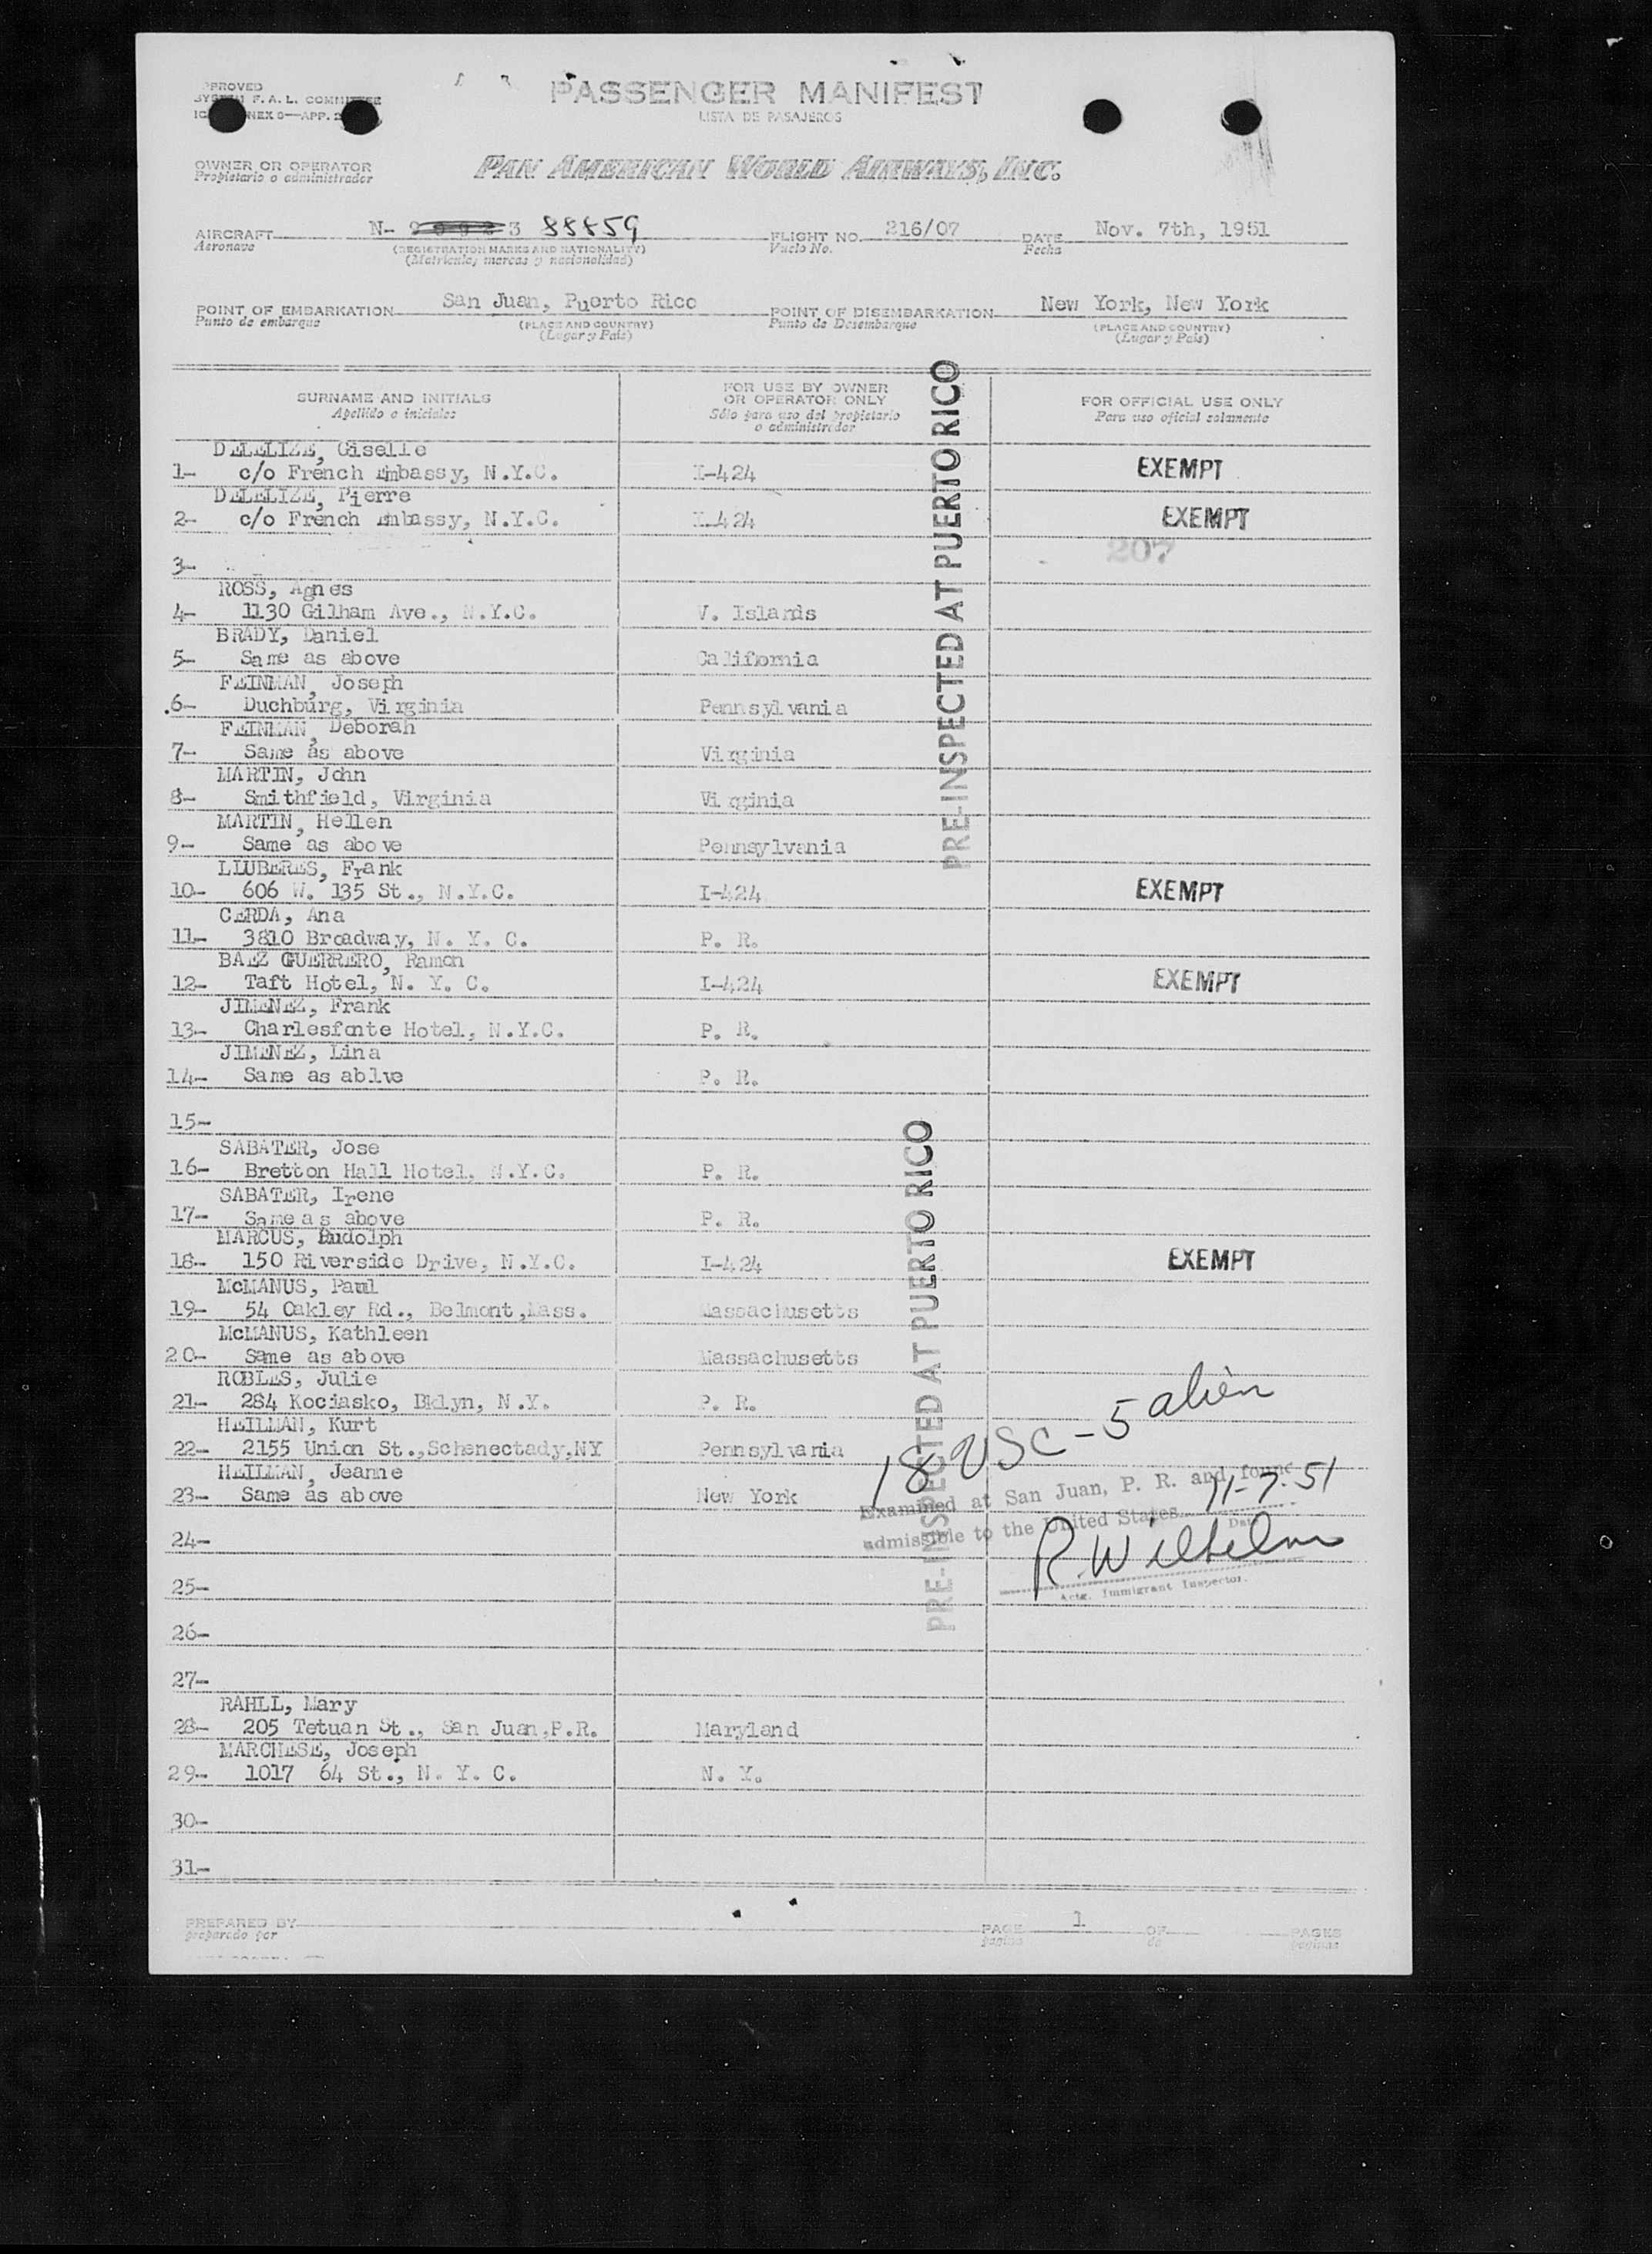 PASSENGER MANIFEST
LISTA DE PASAJEROS
OWNER OR OPERATOR
Propietario o administrador
PAN AMERICAN WORLD AIRWAYS, INC.
AIRCRAFT N- 3 88859
Aeronave
(REGISTRATION MARKS AND NATIONALITY)
(Matricula, marcas y nacionalidad)
FLIGHT NO. 216/07
Vuelo No.
DATE Nov. 7th, 1951
Fecha
POINT OF EMBARKATION San Juan, Puerto Rico
Punto de embarque
(PLACE AND COUNTRY)
(Lugar y Pais)
POINT OF DISEMBARKATION New York, New York
Punto de Desembarque
(PLACE AND COUNTRY)
(Lugar y Pais)
SURNAME AND INITIALS
Apellido e iniciales
FOR USE BY OWNER
OR OPERATOR ONLY
Sólo para uso del propietario
o administrador
FOR OFFICIAL USE ONLY
Para uso oficial solamente
DELELIZE, Giselle
1- c/o French Embassy, N.Y.C. I-424 EXEMPT
DELELIZE, Pierre
2- c/o French Embassy, N.Y.C. I-424 EXEMPT
207
3-
ROSS, Agnes
4- 1130 Gilham Ave., N.Y.C. V. Islands
BRADY, Daniel
5- Same as above California
FEINMAN, Joseph
6- Duchburg, Virginia Pennsylvania
FEINMAN, Deborah
7- Same as above Virginia
MARTIN, John
8- Smithfield, Virginia Virginia
MARTIN, Hellen
9- Same as above Pennsylvania
LLUBERES, Frank
10- 606 W. 135 St., N.Y.C. I-424 EXEMPT
CERDA, Ana
11- 3810 Broadway, N. Y. C. P. R.
BAEZ GUERRERO, Ramon
12- Taft Hotel, N. Y. C. I-424 EXEMPT
JIMENEZ, Frank
13- Charlesfonte Hotel, N.Y.C. P. R.
JIMENEZ, Lina
14- Same as ablve P. R.
15-
SABATER, Jose
16- Bretton Hall Hotel, N.Y.C. P. R.
SABATER, Irene
17- Same as above P. R.
MARCUS, Rudolph
18- 150 Riverside Drive, N.Y.C. I-424 EXEMPT
McMANUS, Paul
19- 54 Oakley Rd., Belmont,Mass. Massachusetts
McMANUS, Kathleen
20- Same as above Massachusetts
ROBLES, Julie
21- 284 Kociasko, Bklyn, N.Y. P. R.
HEILMAN, Kurt
22- 2155 Union St.,Schenectady,NY Pennsylvania
HEILMAN, Jeanne
23- Same as above New York
18 USC - 5 alien
Examined at San Juan, P. R. and found
11-7-51
admissible to the United States
Date
R. Wilhelm
Actg. Immigrant Inspector.
24-
25-
26-
27-
RAHLL, Mary
28- 205 Tetuan St., San Juan,P.R. Maryland
MARCHESE, Joseph
29- 1017 64 St., N. Y. C. N. Y.
30-
31-
PRE-INSPECTED AT PUERTO RICO
PRE-INSPECTED AT PUERTO RICO
PREPARED BY
preparado por
PAGE 1 OF PAGES
pagina de paginas